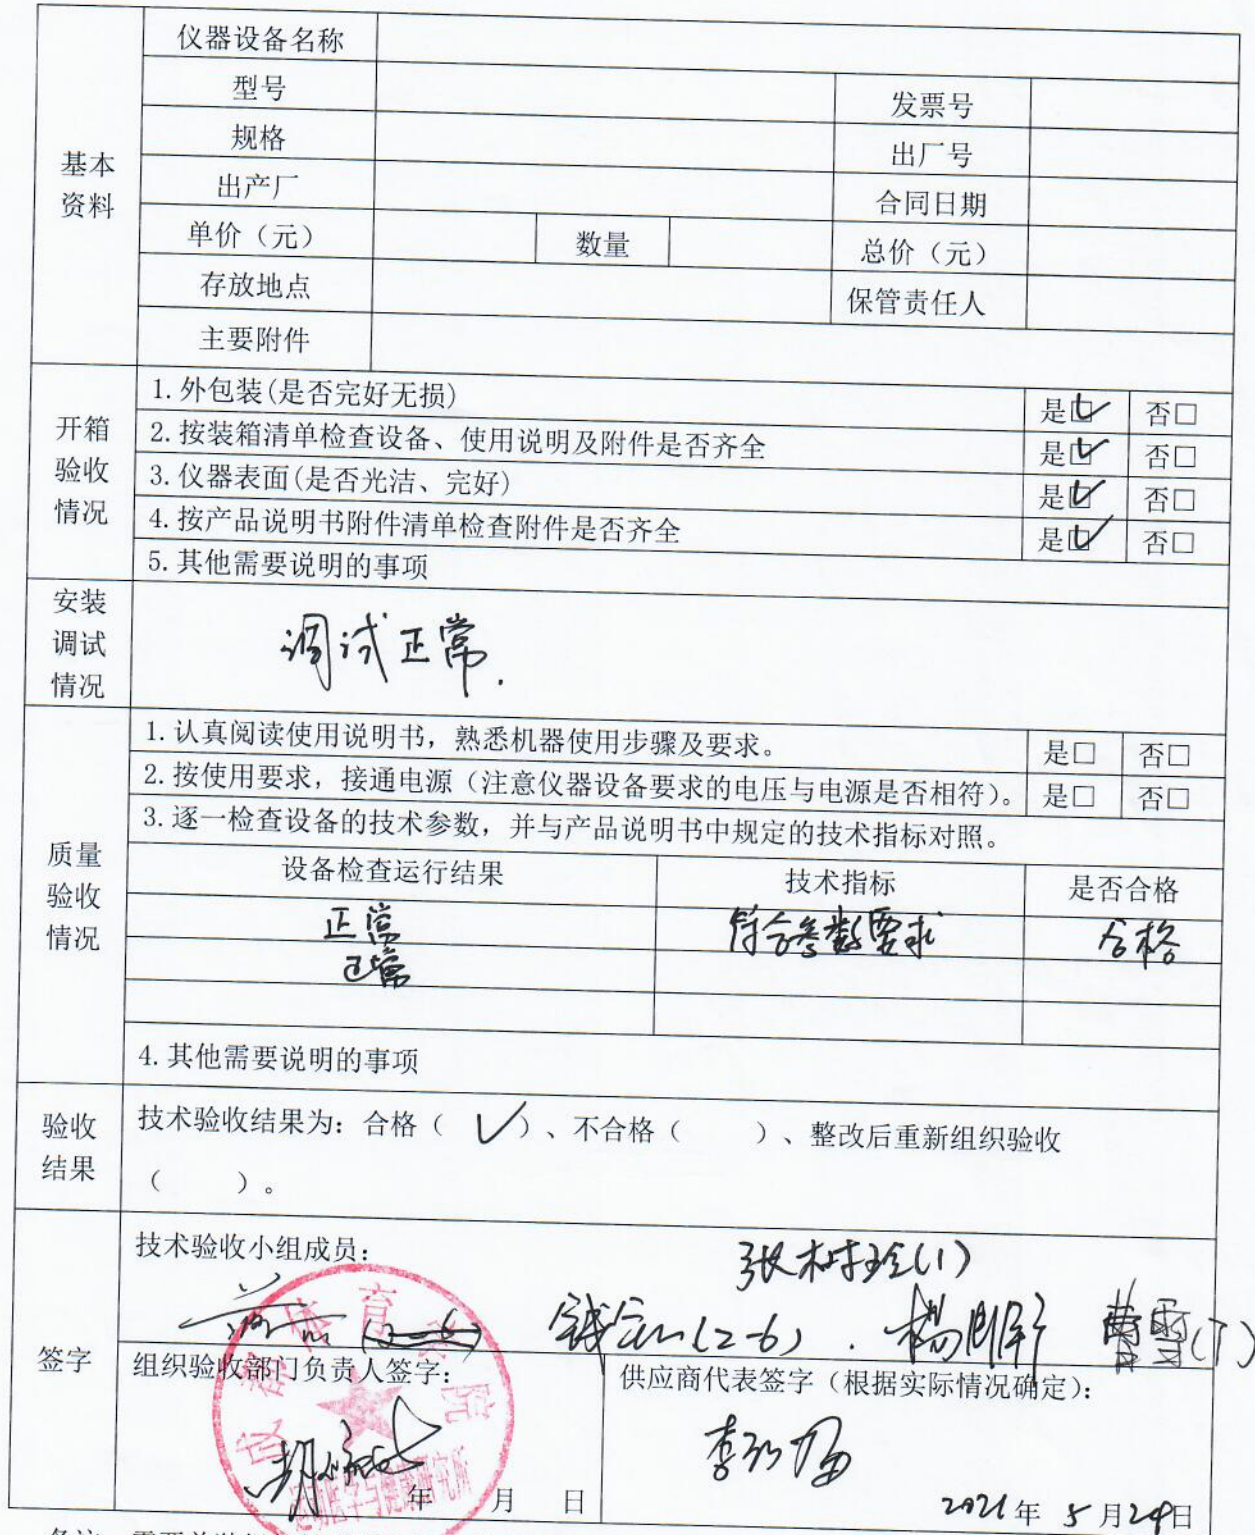 仪器设备名称
型号
发票号
规格
出厂号
基本
资料
出产厂
合同日期
单价（元）
数量
总价（元）
存放地点
保管责任人
主要附件
开箱
验收
情况
1.外包装(是否完好无损) 是☑ 否□
2.按装箱清单检查设备、使用说明及附件是否齐全 是☑ 否□
3.仪器表面(是否光洁、完好) 是☑ 否□
4.按产品说明书附件清单检查附件是否齐全 是☑ 否□
5.其他需要说明的事项
安装
调试
情况
调试正常.
质量
验收
情况
1.认真阅读使用说明书，熟悉机器使用步骤及要求。 是□ 否□
2.按使用要求，接通电源（注意仪器设备要求的电压与电源是否相符）。 是□ 否□
3.逐一检查设备的技术参数，并与产品说明书中规定的技术指标对照。
设备检查运行结果 技术指标 是否合格
正常 符合参数要求 合格
正常
4.其他需要说明的事项
验收
结果
技术验收结果为：合格（ ✓）、不合格（ ）、整改后重新组织验收
（ ）。
签字
技术验收小组成员：
张树玲(1)
(2-6) (2-6) . 杨 曹雪(7)
组织验收部门负责人签字：
成都体育学院
运动医学与健康研究所
年 月 日
供应商代表签字（根据实际情况确定）：
李
2021年 5月24日